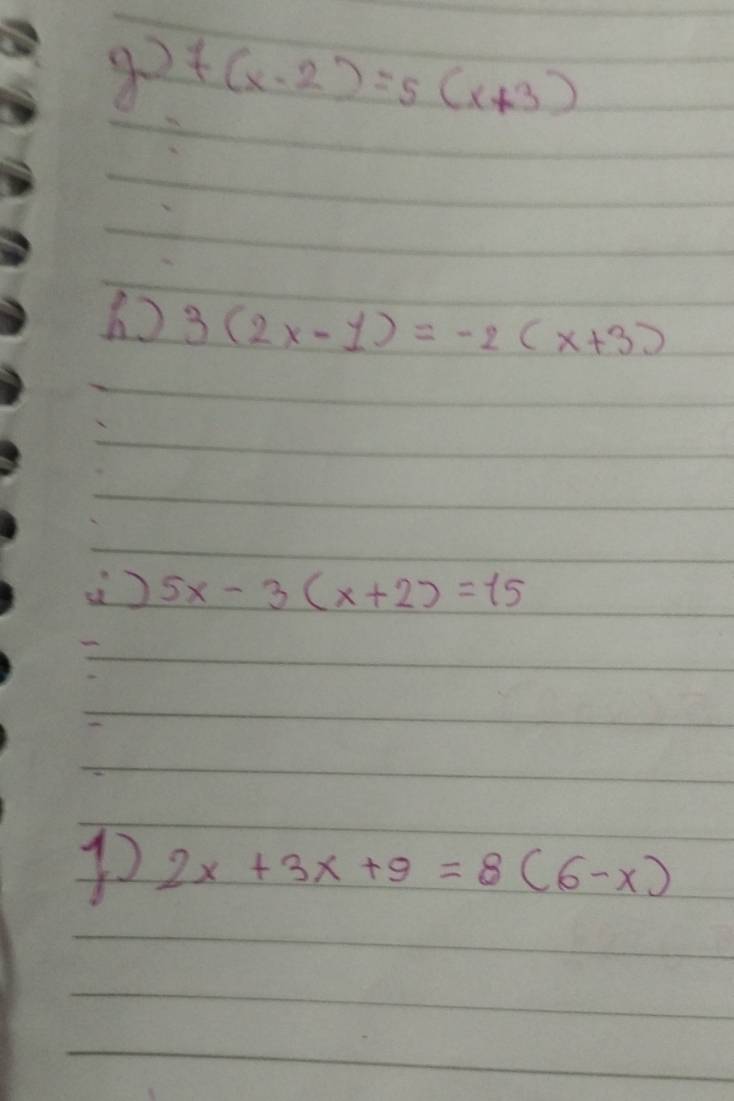 g) 7(x-2) = 5(x+3)
h) 3(2x-1) = -2(x+3)
i) 5x - 3(x+2) = 15
j) 2x + 3x + 9 = 8(6-x)